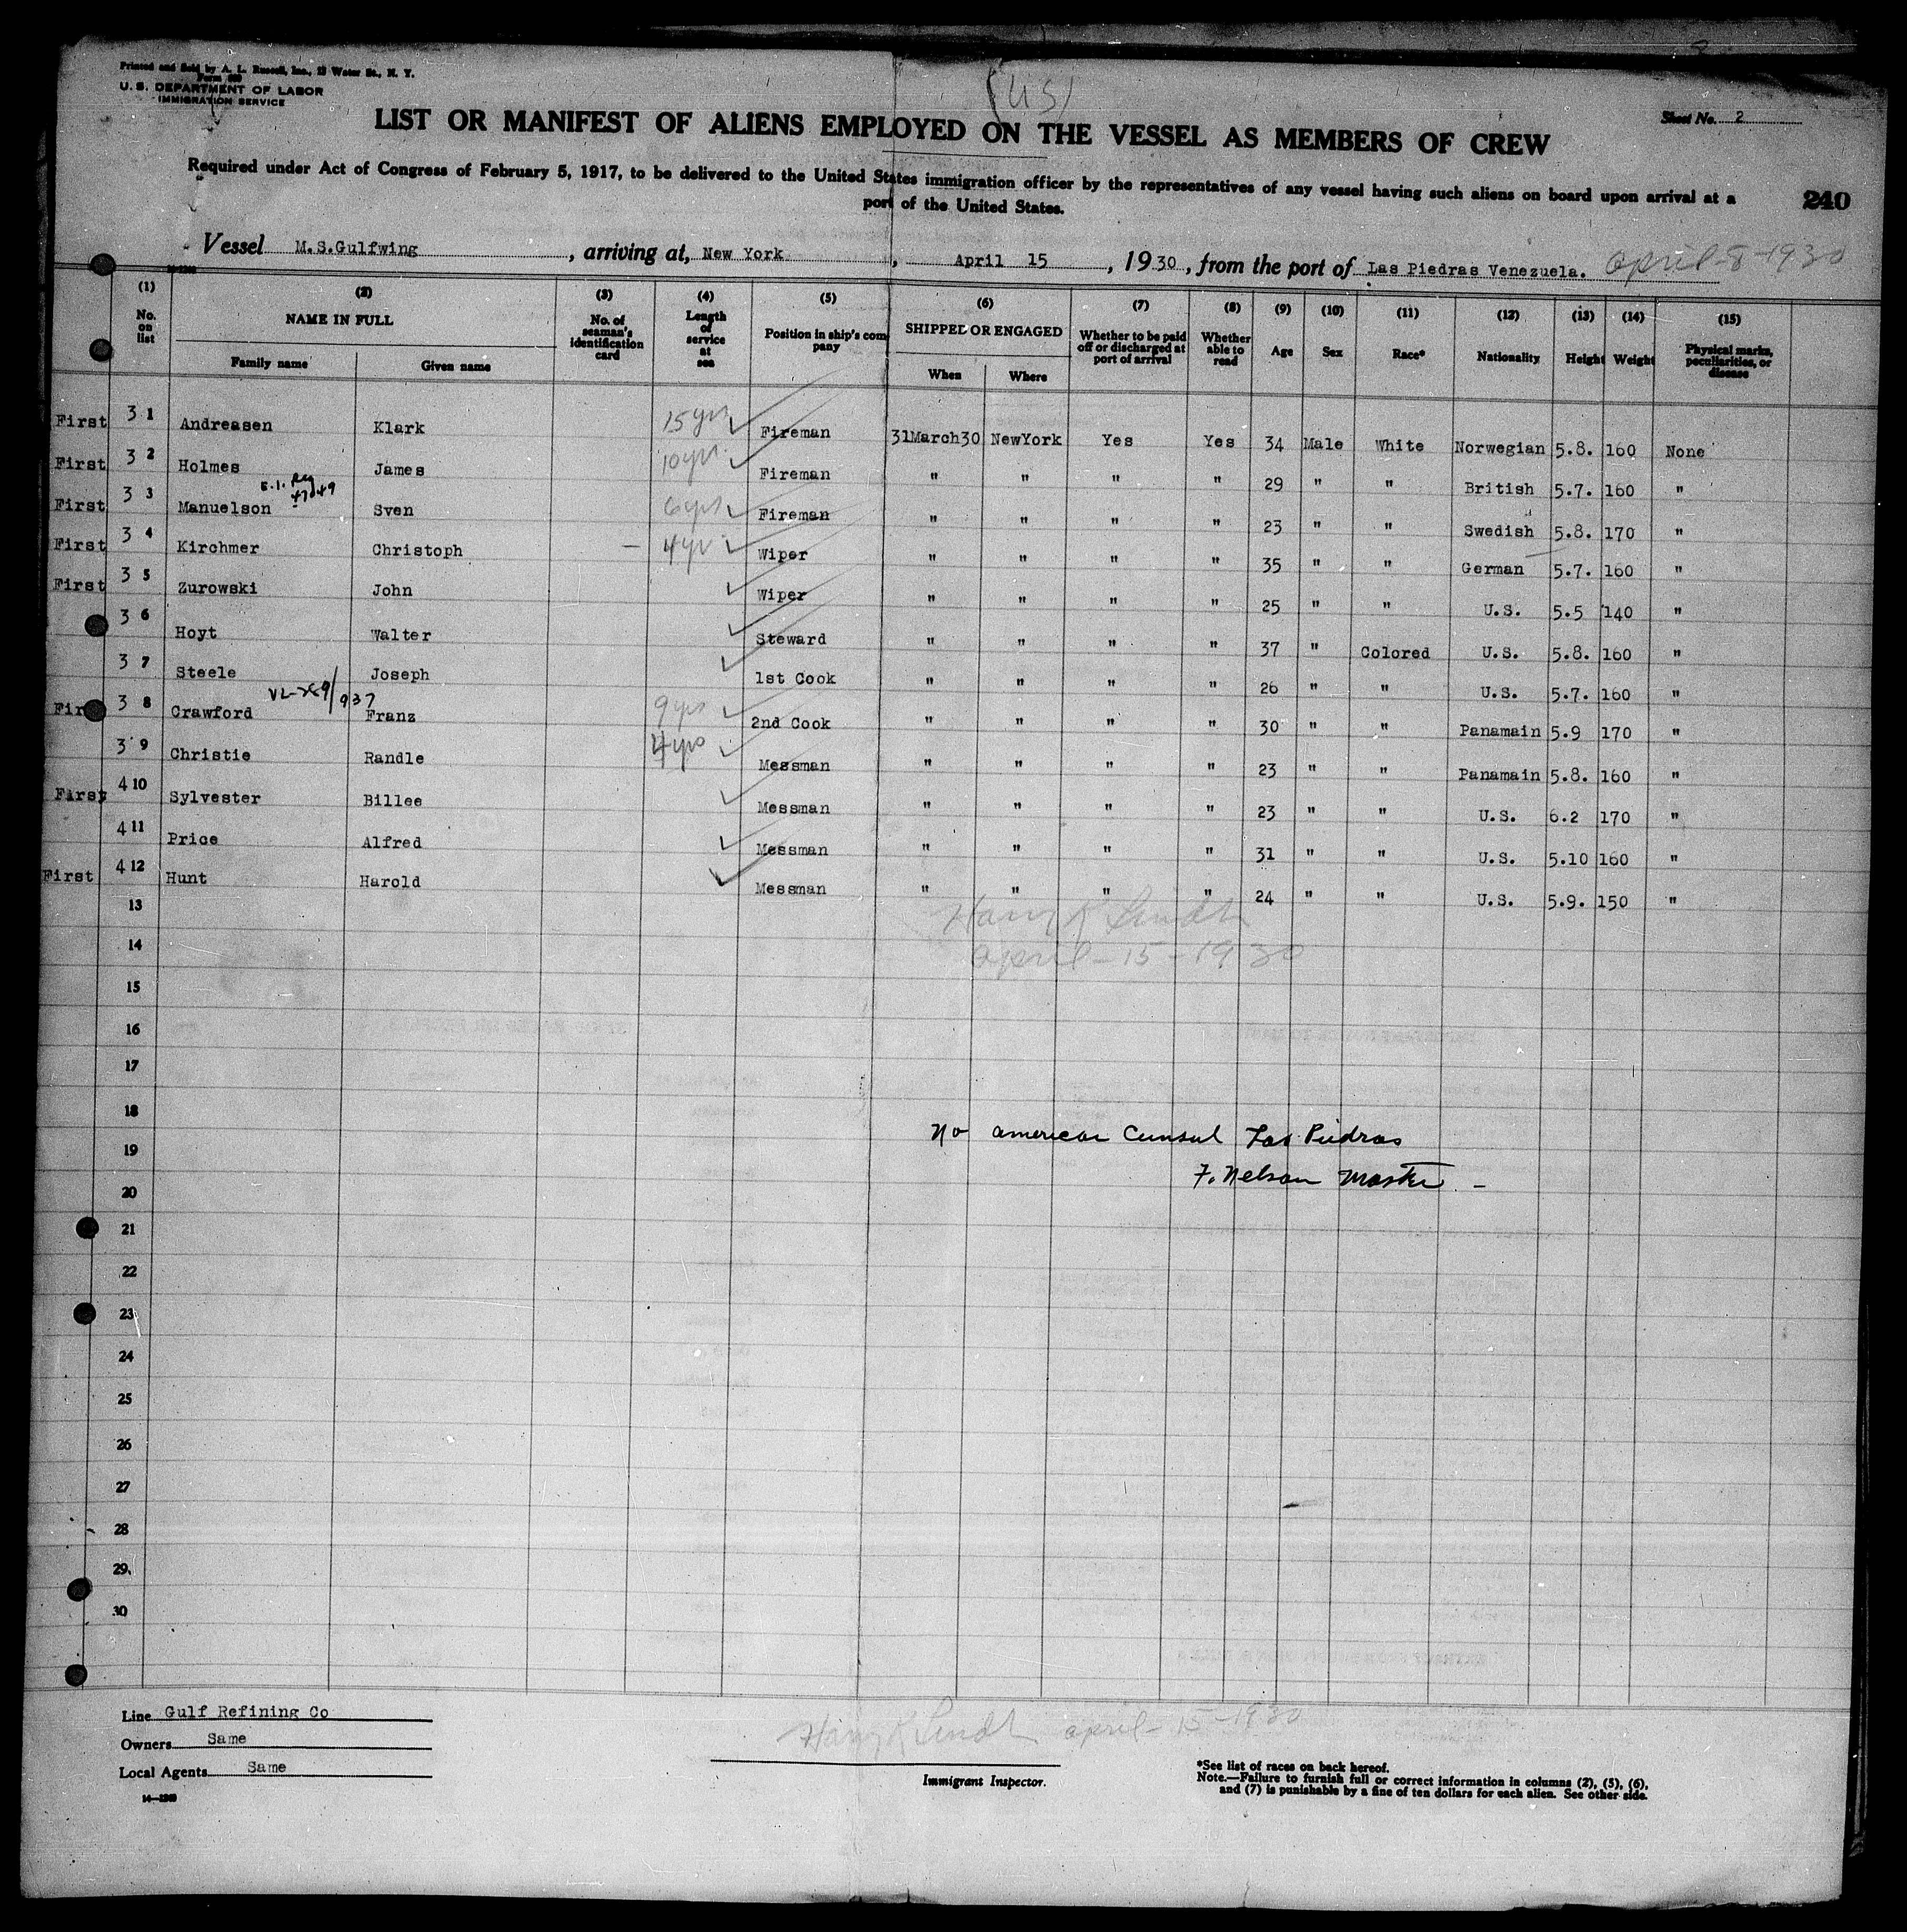 Printed and Sold by A. L. Russell, Inc., 13 Water St., N. Y.
U. S. DEPARTMENT OF LABOR
IMMIGRATION SERVICE
(US)
Sheet No. 2
LIST OR MANIFEST OF ALIENS EMPLOYED ON THE VESSEL AS MEMBERS OF CREW
Required under Act of Congress of February 5, 1917, to be delivered to the United States immigration officer by the representatives of any vessel having such aliens on board upon arrival at a
port of the United States.
240
Vessel M.S.Gulfwing, arriving at, New York, April 15, 1930, from the port of Las Piedras Venezuela. April-8-1930
(1) (2) (3) (4) (5) (6) (7) (8) (9) (10) (11) (12) (13) (14) (15)
No. on list NAME IN FULL No. of seaman's identification card Length of service at sea Position in ship's company SHIPPED OR ENGAGED Whether to be paid off or discharged at port of arrival Whether able to read Age Sex Race* Nationality Height Weight Physical marks, peculiarities, or disease
Family name Given name When Where
First 3 1 Andreasen Klark 15 yrs Fireman 31March30 NewYork Yes Yes 34 Male White Norwegian 5.8. 160 None
First 3 2 Holmes James 10 yrs. Fireman " " " " 29 " " British 5.7. 160 "
E.I. Reg
First 3 3 Manuelson Sven 6 yrs Fireman " " " " 23 " " Swedish 5.8. 170 "
First 3 4 Kirchmer Christoph - 4 yr. Wiper " " " " 35 " " German 5.7. 160 "
First 3 5 Zurowski John Wiper " " " " 25 " " U.S. 5.5 140 "
3 6 Hoyt Walter Steward " " " " 37 " Colored U.S. 5.8. 160 "
3 7 Steele Joseph 1st Cook " " " " 26 " " U.S. 5.7. 160 "
VL-289/937
Fir 3 8 Crawford Franz 9 yrs 2nd Cook " " " " 30 " " Panamain 5.9 170 "
3 9 Christie Randle 4 yrs Messman " " " " 23 " " Panamain 5.8. 160 "
First 4 10 Sylvester Billee Messman " " " " 23 " " U.S. 6.2 170 "
4 11 Price Alfred Messman " " " " 31 " " U.S. 5.10 160 "
First 4 12 Hunt Harold Messman " " " " 24 " " U.S. 5.9. 150 "
13
Harry K Lindh
14
April-15-1930
15
16
17
18
No american Consul Las Piedras
19
F. Nelson Master -
20
21
22
23
24
25
26
27
28
29
30
Line Gulf Refining Co
Owners Same
Local Agents Same
Harry K Lindh april-15-1930
Immigrant Inspector.
*See list of races on back hereof.
Note.—Failure to furnish full or correct information in columns (2), (5), (6),
and (7) is punishable by a fine of ten dollars for each alien. See other side.